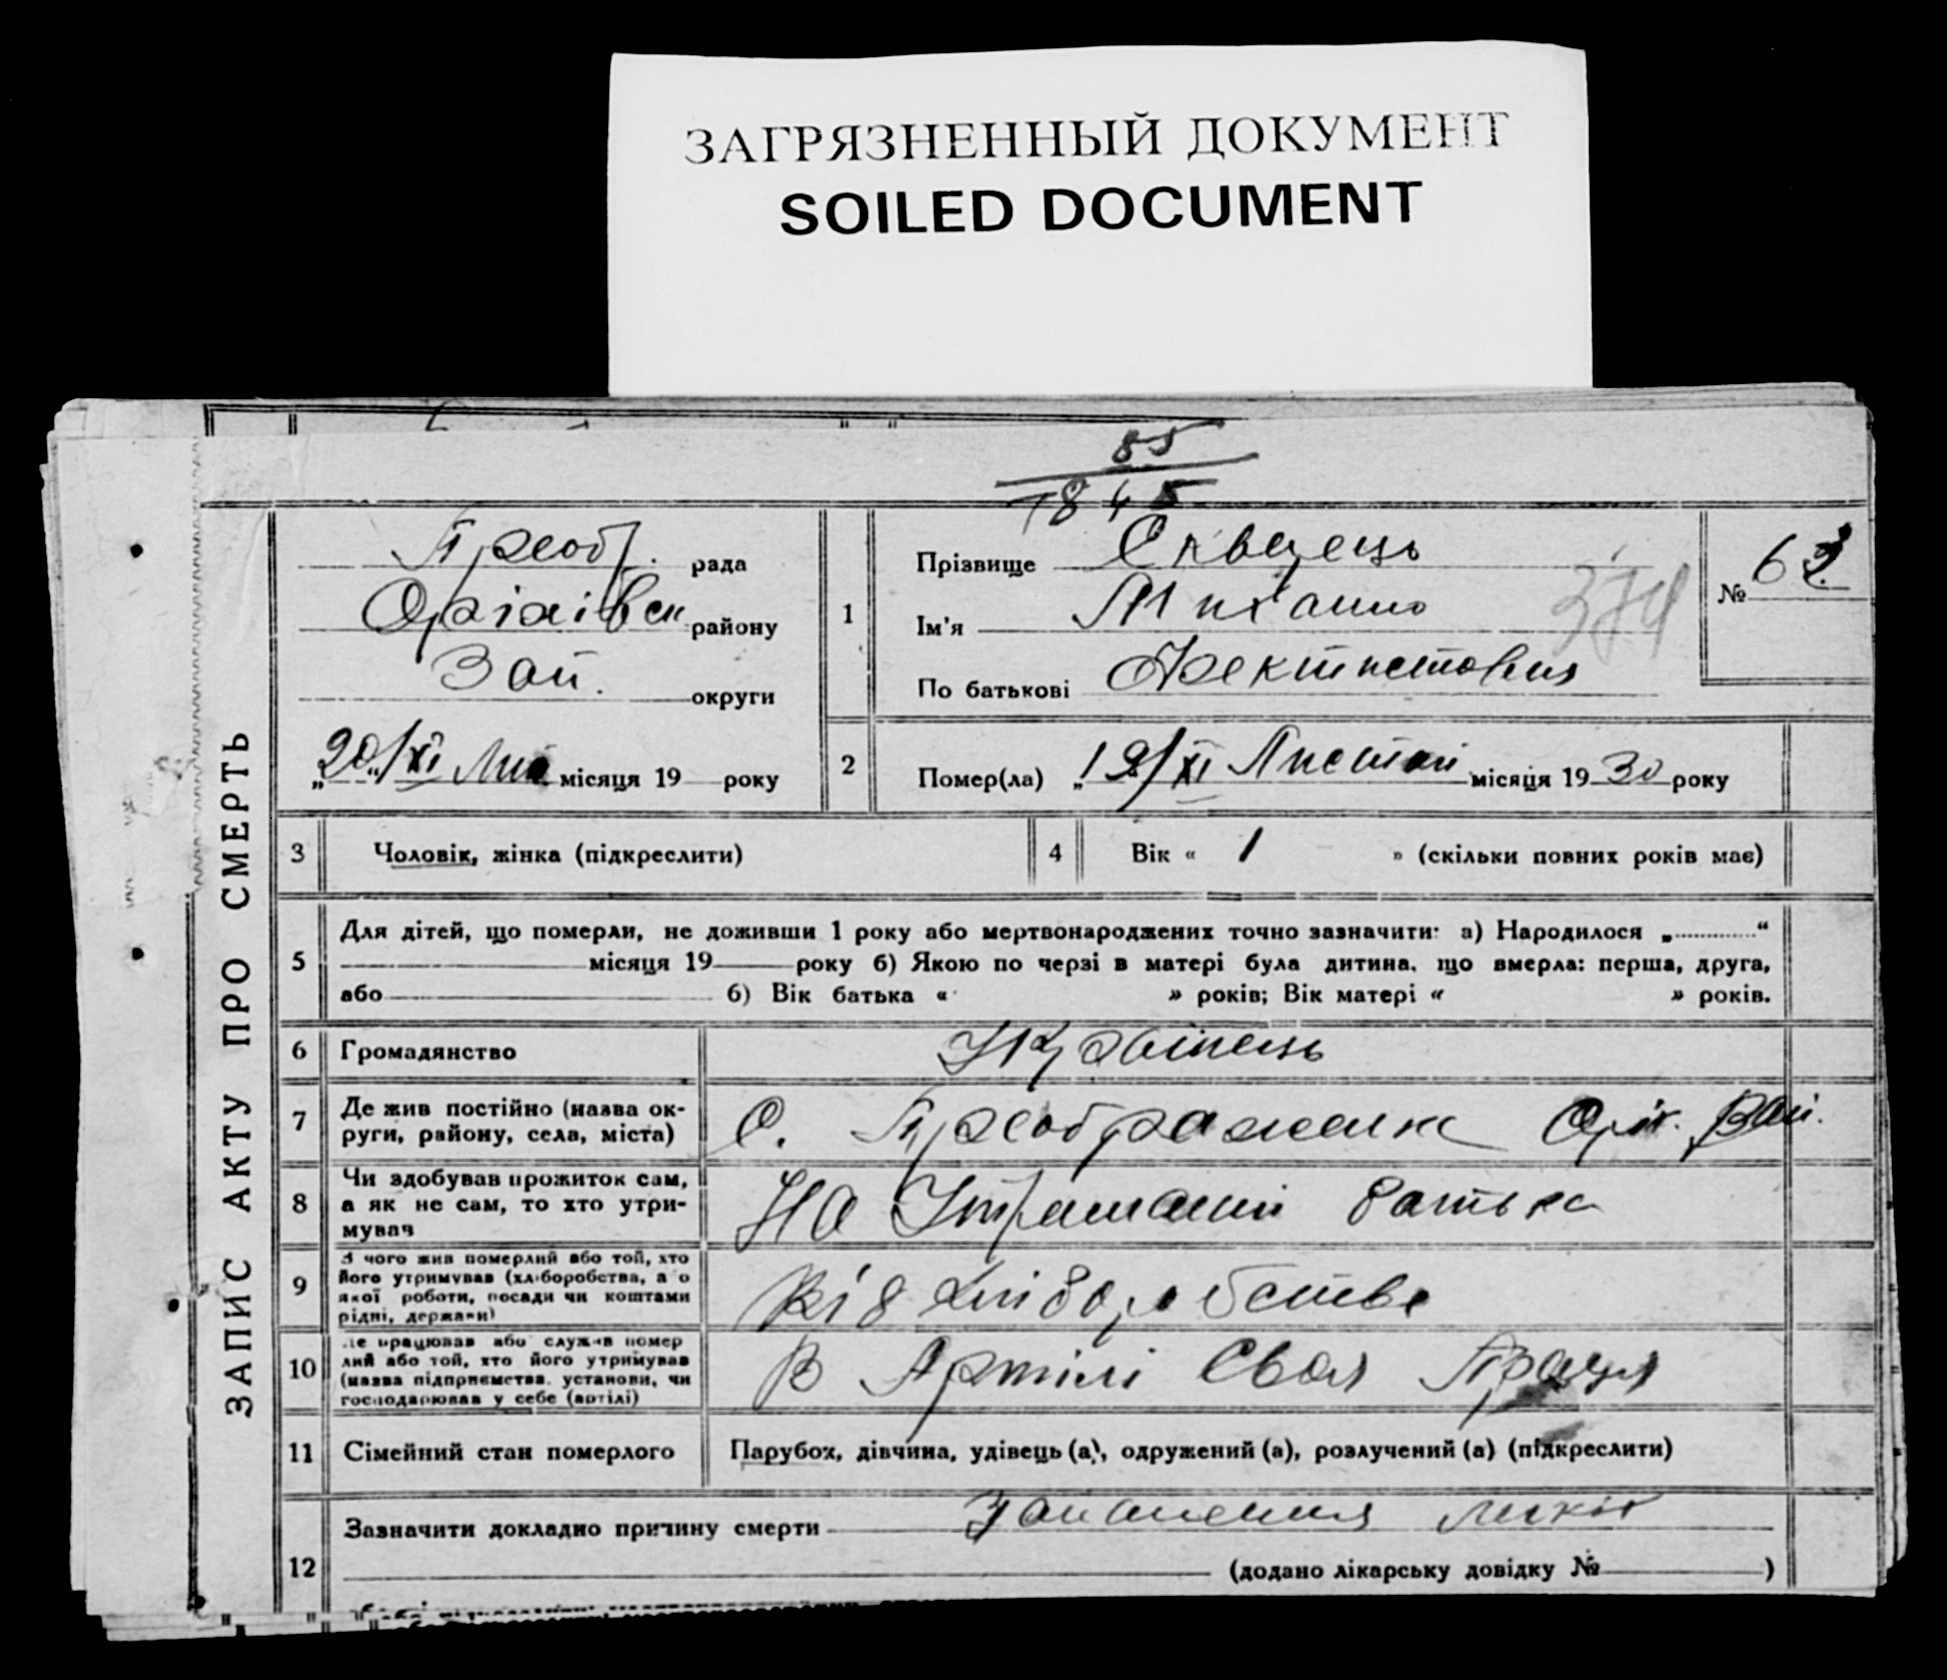 ЗАГРЯЗНЕННЫЙ ДОКУМЕНТ
SOILED DOCUMENT
85
1845
ЗАПИС АКТУ ПРО СМЕРТЬ
Преобр. рада
Оріхівськ району
Зап. округи
„20“/XI Лис місяця 19 року
1
Прізвище
Ім'я Михайло
По батькові Фектистович
374
№ 62
2
Помер(ла) „19/XI Листоп місяця 19 30 року
3 Чоловік, жінка (підкреслити)
4 Вік « 1 » (скільки повних років має)
5
Для дітей, що померли, не доживши 1 року або мертвонароджених точно зазначити: а) Народилося „ “
місяця 19 року б) Якою по черзі в матері була дитина, що вмерла: перша, друга,
або б) Вік батька « » років; Вік матері « » років.
6 Громадянство Українець
7 Де жив постійно (назва ок-
руги, району, села, міста)
С. Преображенка Оріх. Зап.
8 Чи здобував прожиток сам,
а як не сам, то хто утри-
мував
На Утриманні батька
9 З чого жив померлий або той, хто
його утримував (хліборобства, а о
якої роботи, посади чи коштами
рідні, держави)
Від хліборобства
10 Де працював або служив помер
лий або той, хто його утримував
(назва підприємства, установи, чи
господарював у себе (артілі)
В Артілі Своя Праця
11 Сімейний стан померлого Парубок, дівчина, удівець (а), одружений (а), розлучений (а) (підкреслити)
12 Зазначити докладно причину смерти Запалення
(додано лікарську довідку № )